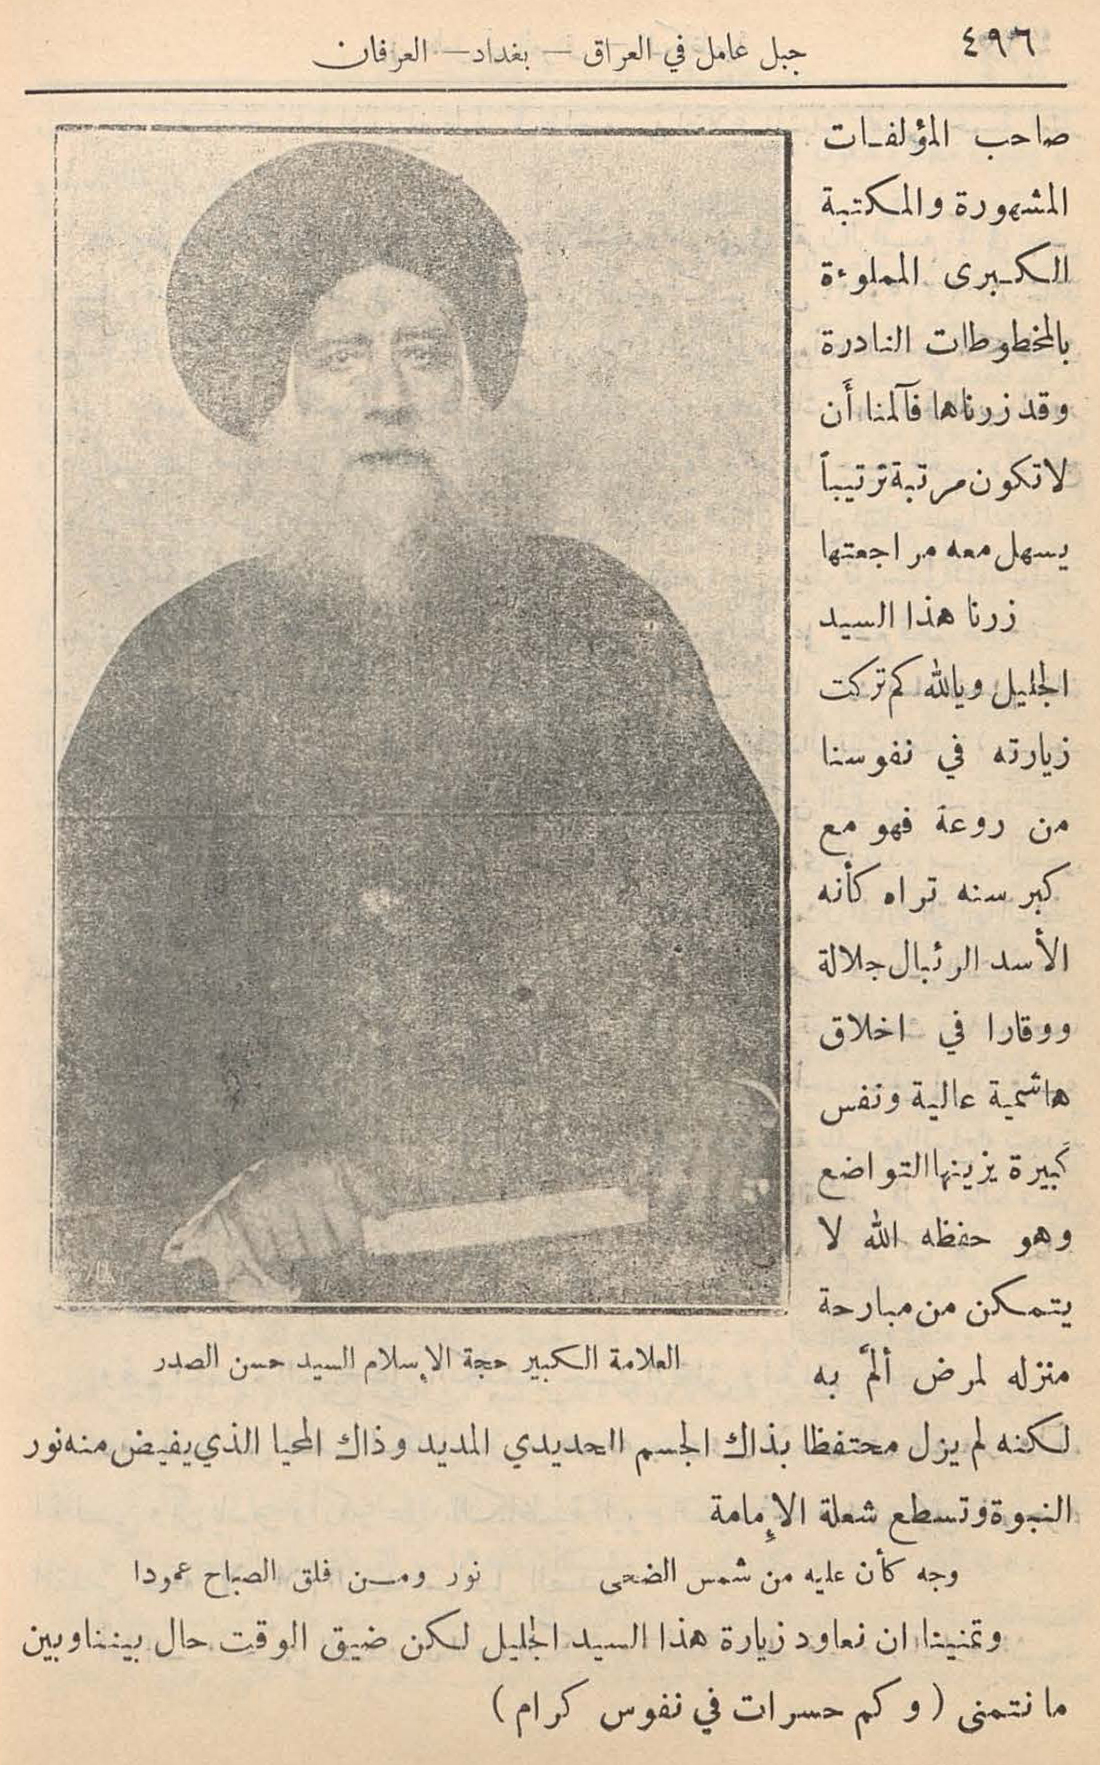 ٤٩٦
جبل عامل في العراق — بغداد — العرفان
صاحب المؤلفات
المشهورة والمكتبة
الكبرى المملوءة
بالمخطوطات النادرة
وقد زرناها فآلمنا أَن
لا تكون مرتبة ترتيباً
يسهل معه مراجعتها
زرنا هذا السيد
الجليل ويالله كم تركت
زيارته في نفوسنا
من روعة فهو مع
كبر سنه تراه كأنه
الأسد الرئبال جلالة
ووقارا في اخلاق
هاشمية عالية ونفس
كبيرة يزينها التواضع
وهو حفظه الله لا
يتمكن من مبارحة
منزله لمرض ألمَّ به
العلامة الكبير حجة الإسلام السيد حسن الصدر
لكنه لم يزل محتفظا بذاك الجسم الحديدي المديد وذاك المحيا الذي يفيض منه نور
النبوة وتسطع شعلة الإمامة
وجه كأن عليه من شمس الضحى نور ومن فلق الصباح عمودا
وتمنينا ان نعاود زيارة هذا السيد الجليل لكن ضيق الوقت حال بيننا وبين
ما نتمنى ( وكم حسرات في نفوس كرام )